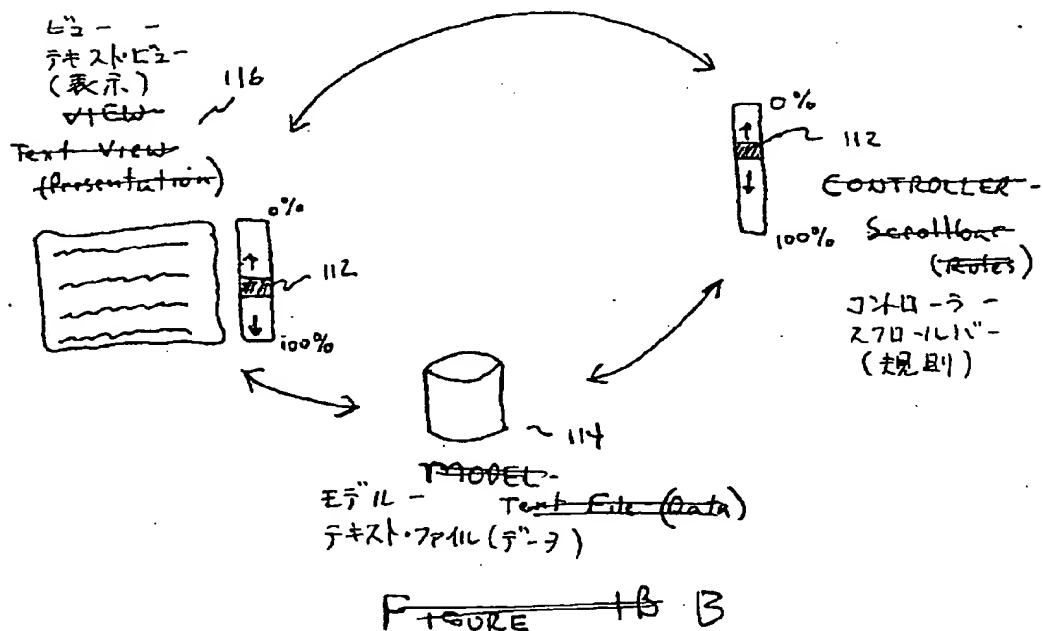 ビュー ー
テキスト・ビュー
(表示)
VIEW
Text View
(Presentation)
116
0%
112
100%
0%
112
100%
CONTROLLER -
Scrollbar
(Rules)
コントローラ ー
スクロールバー
(規則)
114
MODEL -
Text File (Data)
モデル ー
テキスト・ファイル(データ)
FIGURE 1B B